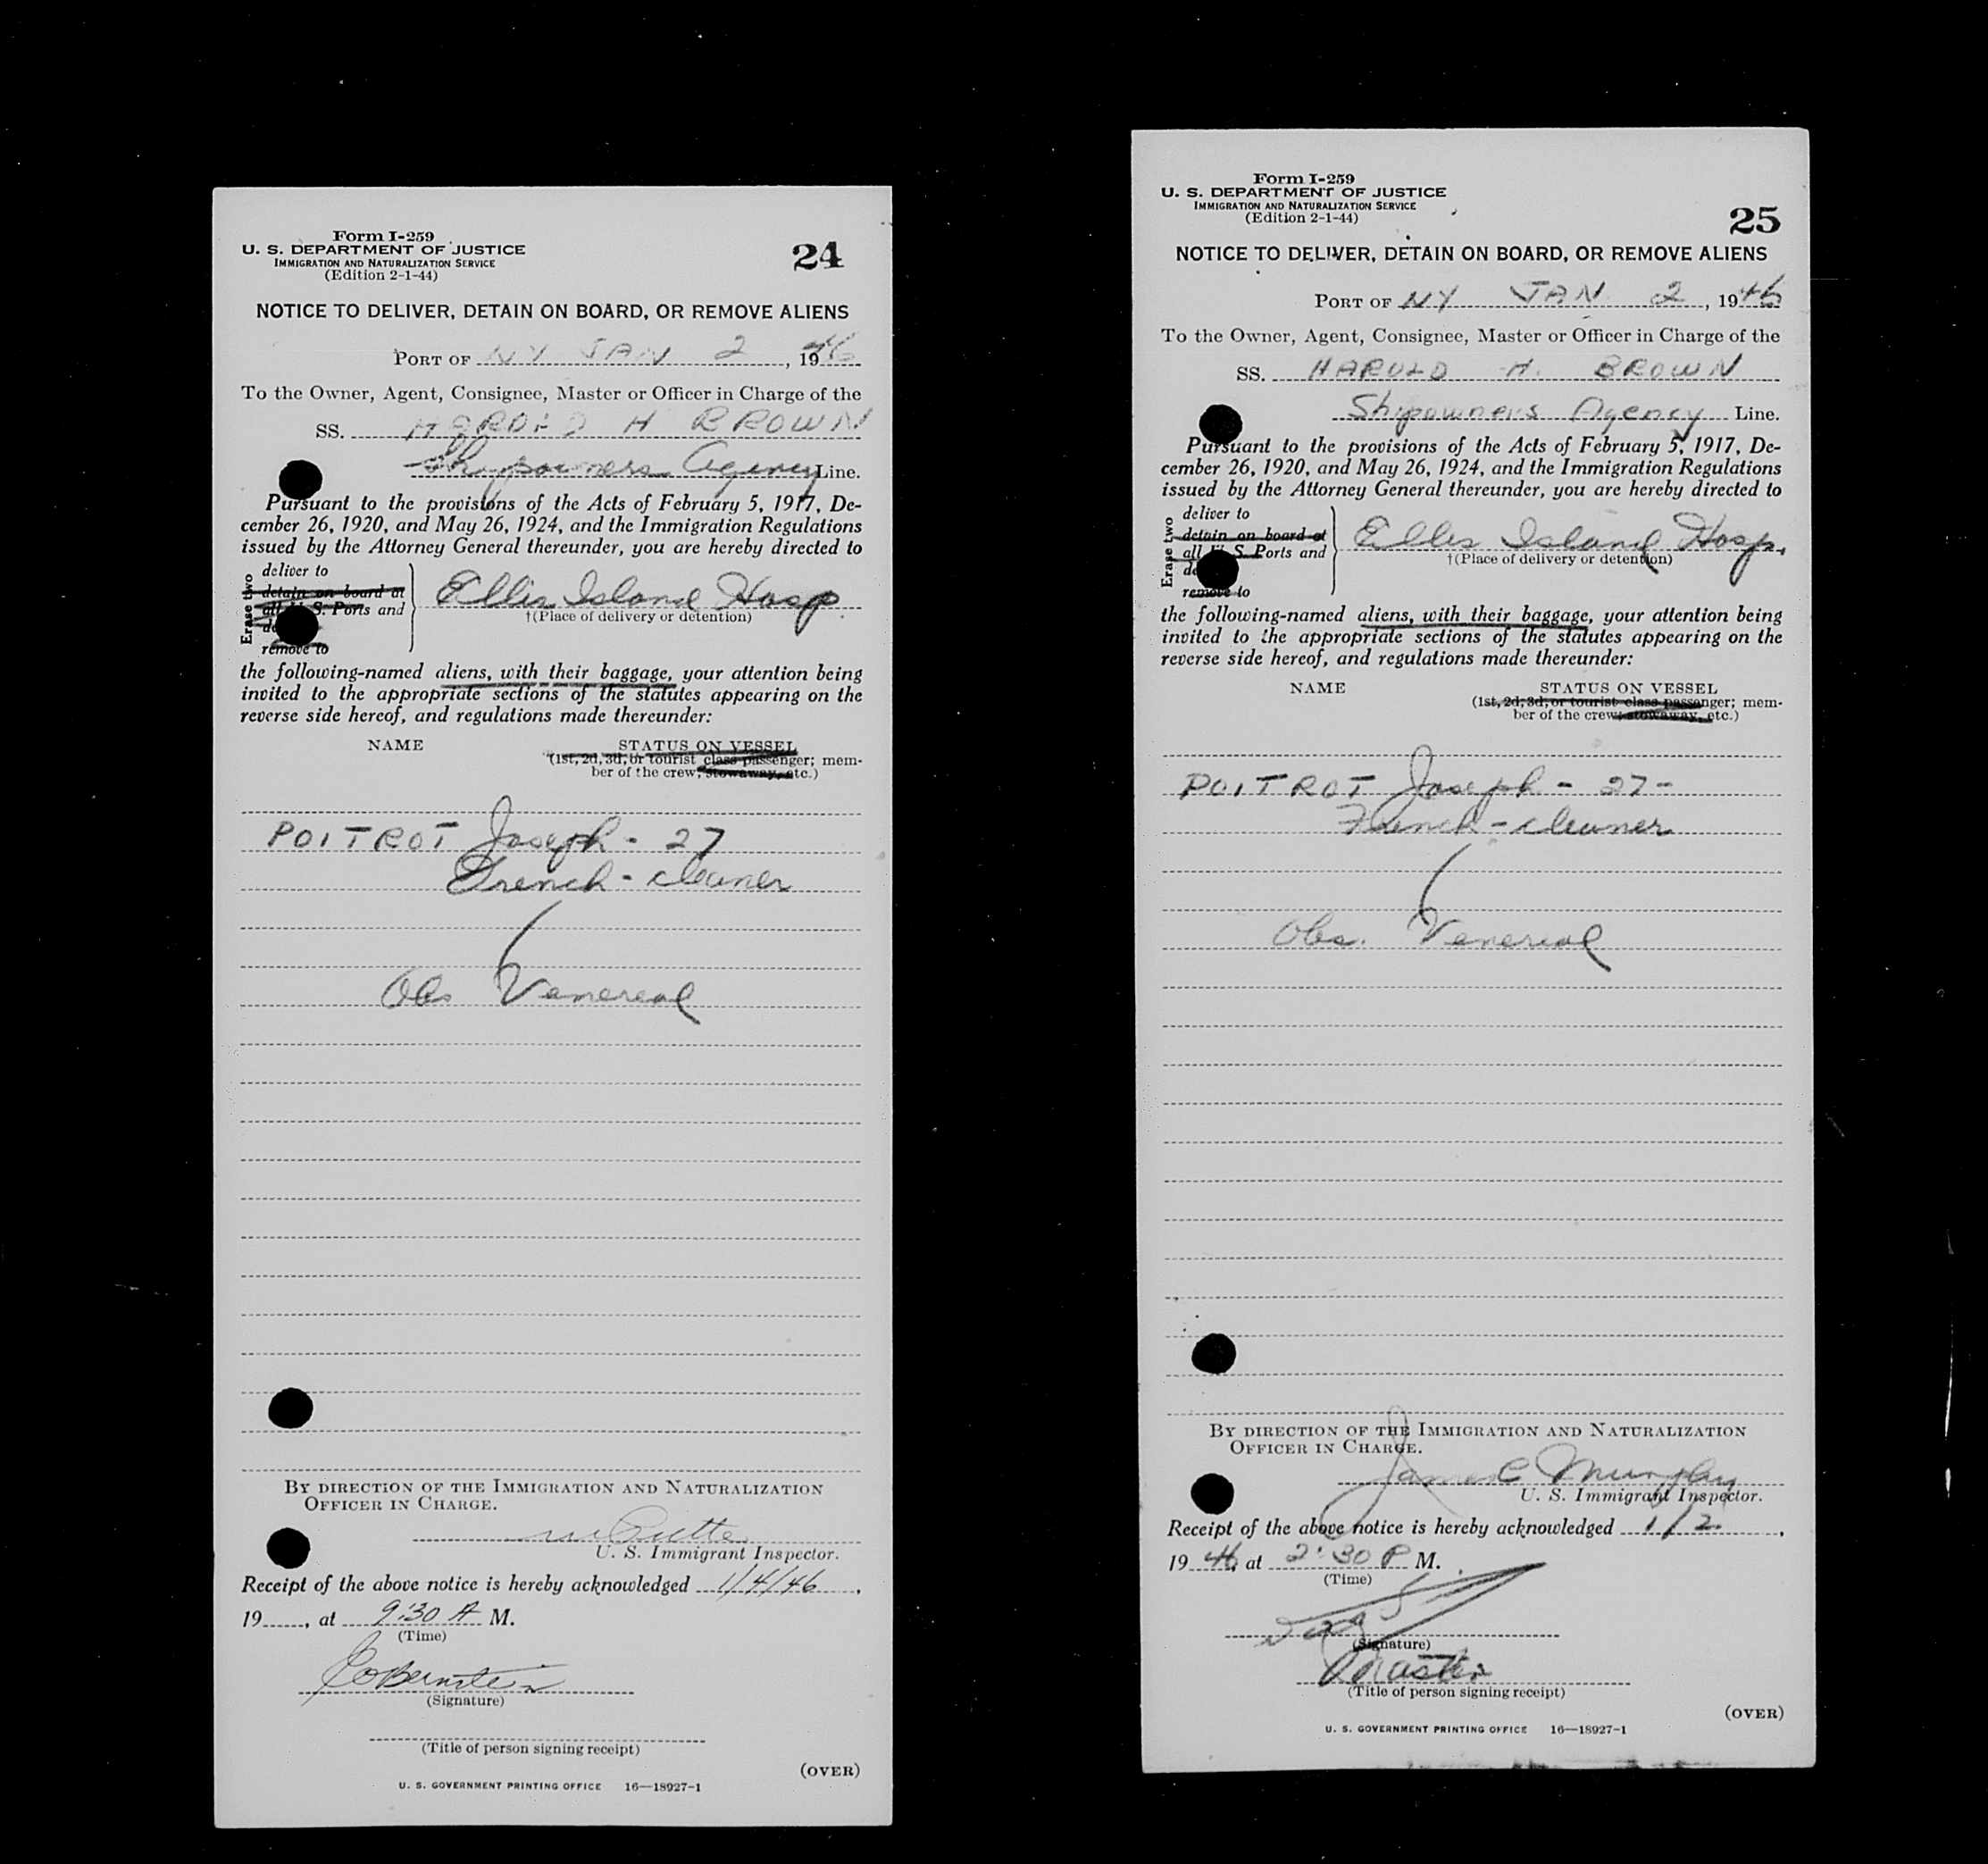 Form I-259
U. S. DEPARTMENT OF JUSTICE
IMMIGRATION AND NATURALIZATION SERVICE
(Edition 2-1-44)
24
NOTICE TO DELIVER, DETAIN ON BOARD, OR REMOVE ALIENS
PORT OF NY JAN 2, 1946
To the Owner, Agent, Consignee, Master or Officer in Charge of the
SS. HAROLD H BROWN
Shipowners Agency Line.
Pursuant to the provisions of the Acts of February 5, 1917, De-
cember 26, 1920, and May 26, 1924, and the Immigration Regulations
issued by the Attorney General thereunder, you are hereby directed to
Erase two
deliver to
detain on board at
all U. S. Ports and
remove to
Ellis Island Hosp
†(Place of delivery or detention)
the following-named aliens, with their baggage, your attention being
invited to the appropriate sections of the statutes appearing on the
reverse side hereof, and regulations made thereunder:
NAME STATUS ON VESSEL
(1st, 2d, 3d, or tourist class passenger; mem-
ber of the crew; stowaway, etc.)
POITROT Joseph - 27
French - cleaner
Obs Venereal
BY DIRECTION OF THE IMMIGRATION AND NATURALIZATION
OFFICER IN CHARGE.
U. S. Immigrant Inspector.
Receipt of the above notice is hereby acknowledged 1/4/46,
19, at 9:30 A M.
(Time)
Bernstein
(Signature)
(Title of person signing receipt)
(OVER)
U. S. GOVERNMENT PRINTING OFFICE 16—18927-1
Form I-259
U. S. DEPARTMENT OF JUSTICE
IMMIGRATION AND NATURALIZATION SERVICE
(Edition 2-1-44)
25
NOTICE TO DELIVER, DETAIN ON BOARD, OR REMOVE ALIENS
PORT OF NY JAN 2, 1946
To the Owner, Agent, Consignee, Master or Officer in Charge of the
SS. HAROLD H. BROWN
Shipowners Agency Line.
Pursuant to the provisions of the Acts of February 5, 1917, De-
cember 26, 1920, and May 26, 1924, and the Immigration Regulations
issued by the Attorney General thereunder, you are hereby directed to
Erase two
deliver to
detain on board at
all U. S. Ports and
remove to
Ellis Island Hosp.
†(Place of delivery or detention)
the following-named aliens, with their baggage, your attention being
invited to the appropriate sections of the statutes appearing on the
reverse side hereof, and regulations made thereunder:
NAME STATUS ON VESSEL
(1st, 2d, 3d, or tourist class passenger; mem-
ber of the crew; stowaway, etc.)
POITROT Joseph - 27 -
French - cleaner
Obs. Venereal
BY DIRECTION OF THE IMMIGRATION AND NATURALIZATION
OFFICER IN CHARGE.
James C Murphy
U. S. Immigrant Inspector.
Receipt of the above notice is hereby acknowledged 1/2,
1946, at 2:30 P M.
(Time)
(Signature)
Master
(Title of person signing receipt)
(OVER)
U. S. GOVERNMENT PRINTING OFFICE 16—18927-1